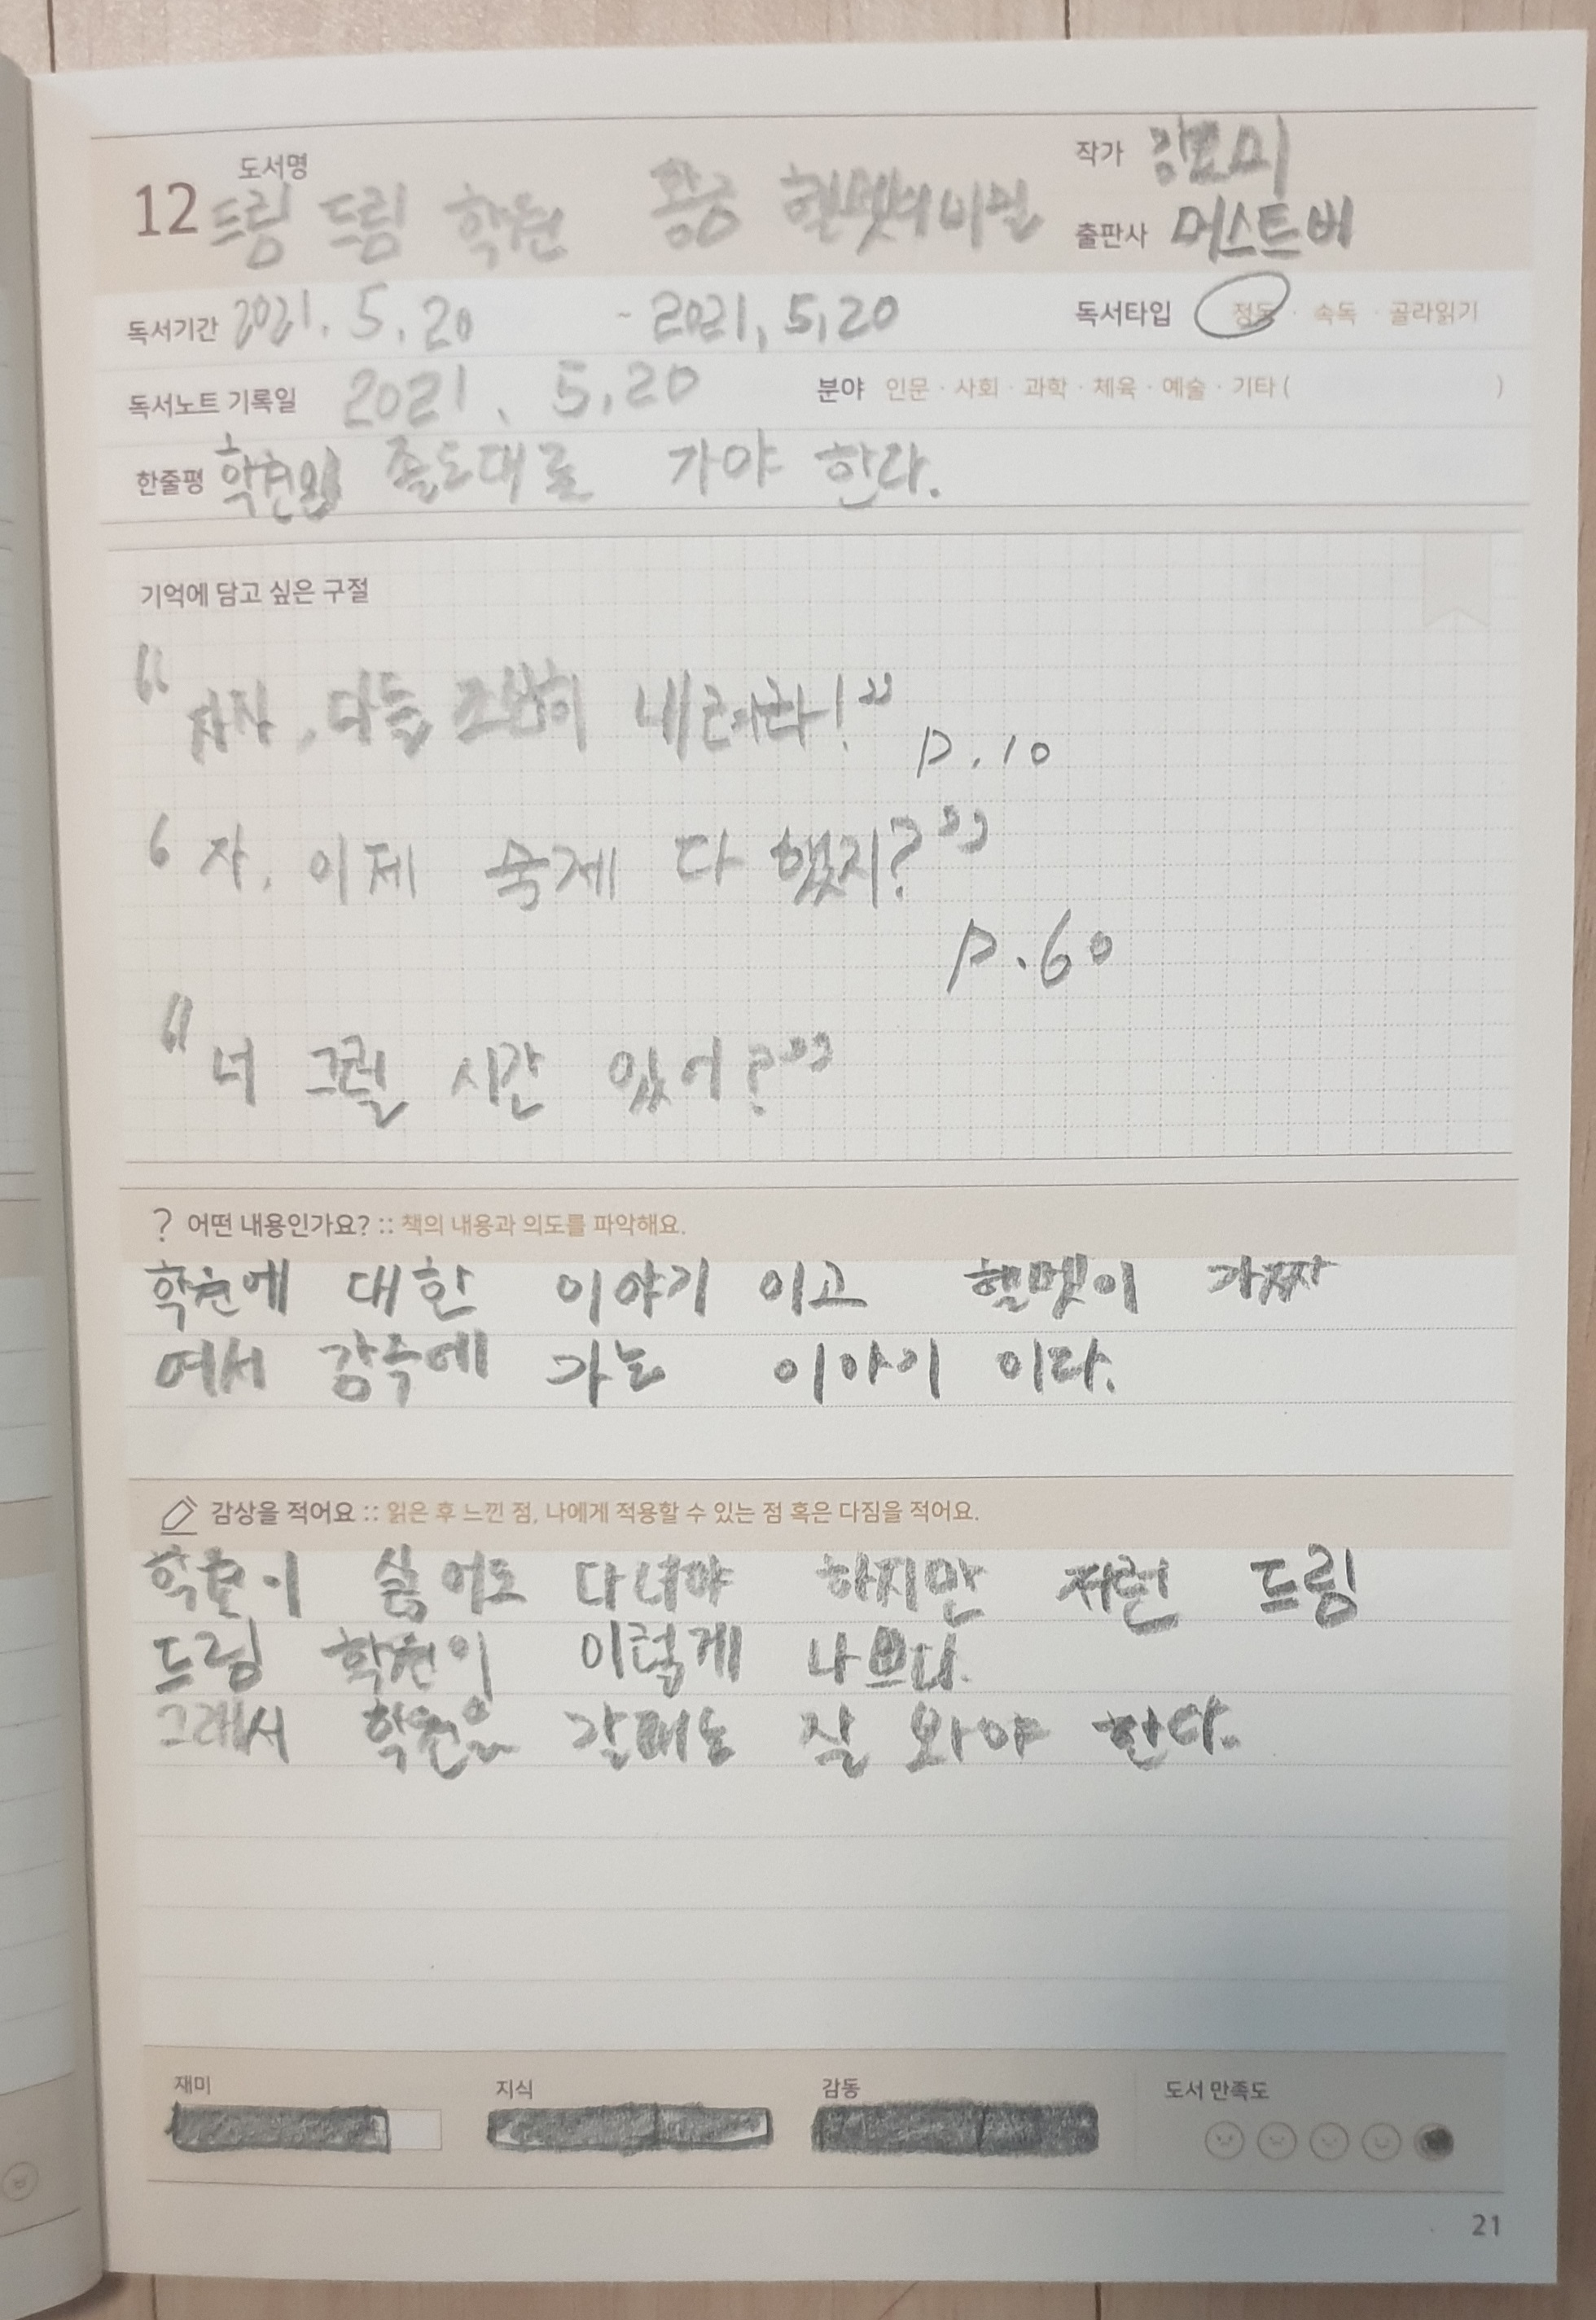 도서명
12 드림 드림 학원 황궁 헬멧의 비밀
작가
출판사 머스트비
독서기간 2021. 5. 20 ~ 2021. 5. 20
독서타입 정독 · 속독 · 골라읽기
독서노트 기록일 2021. 5. 20
분야 인문 · 사회 · 과학 · 체육 · 예술 · 기타 ( )
한줄평 가야 한다.
기억에 담고 싶은 구절
" 자자, 다들 조심히 내려라!"
p. 10
‘ 자, 이제 숙제 다 했지?"
p. 60
" 너 그럴 시간 있어?"
? 어떤 내용인가요? :: 책의 내용과 의도를 파악해요.
학원에 대한 이야기 이고 헬멧이 가짜
여서 감독에 가는 이야기 이다.
감상을 적어요 :: 읽은 후 느낀 점, 나에게 적용할 수 있는 점 혹은 다짐을 적어요.
학원이 싫어도 다녀야 하지만 저런 드림
드림 학원이 이렇게 나쁘다.
그래서 학원을 갈때는 잘 봐야 한다.
재미 지식 감동 도서 만족도
21